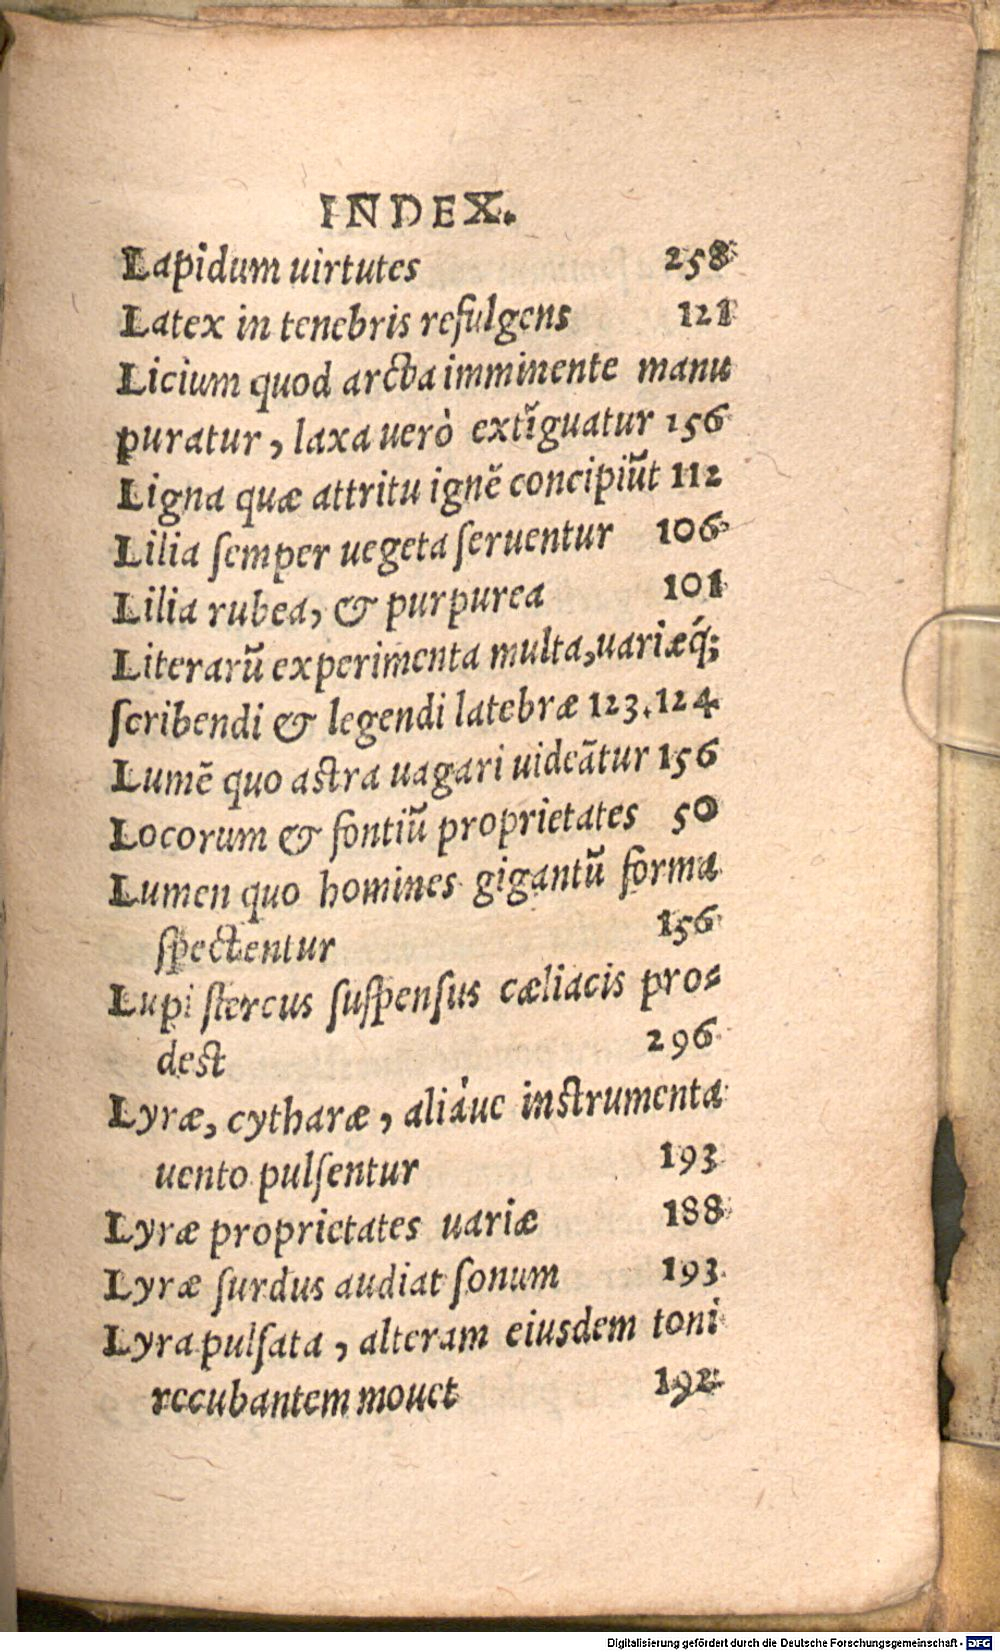 INDEX.
Lapidum uirtutes 258
Latex in tenebris refulgens 121
Licium quod arcta imminente manu
puratur, laxa uerò extĩguatur 156
Ligna quæ attritu ignẽ concipiũt 112
Lilia ſemper uegeta ſeruentur 106
Lilia rubea, & purpurea 101
Literarũ experimenta multa, uariæq́;
ſcribendi & legendi latebræ 123.124
Lumẽ quo aſtra uagari uideãtur 156
Locorum & fontiũ proprietates 50
Lumen quo homines gigantũ forma
ſpectentur 156
Lupi ſtercus ſuſpenſus cæliacis pro-
deſt 296
Lyræ, cytharæ, aliáue inſtrumenta
uento pulſentur 193
Lyræ proprietates uariæ 188
Lyræ ſurdus audiat ſonum 193
Lyra pulſata, alteram eiusdem toni
recubantem mouet 192
Digitalisierung gefördert durch die Deutsche Forschungsgemeinschaft - DFG